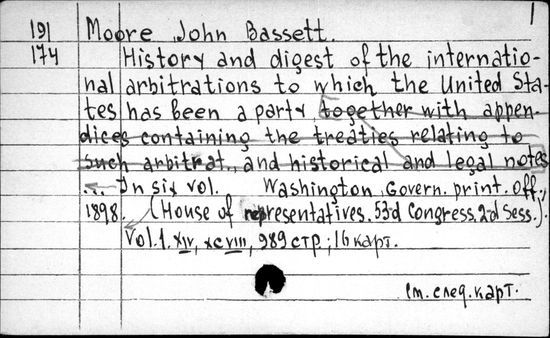 1
191 Moore John Bassett.
174 History and digest of the internatio-
nal arbitrations to which the United Sta-
tes has been a party together with appen-
dices containing the treaties relating to
such arbitrat., and historical and legal notes
... In six vol. Washington. Govern. print. off.,
1898. (House of representatives. 53d Congress. 2d Sess.).
Vol. 1. XIV, XCVIII, 989 стр; 16 карт.
См. след. карт.